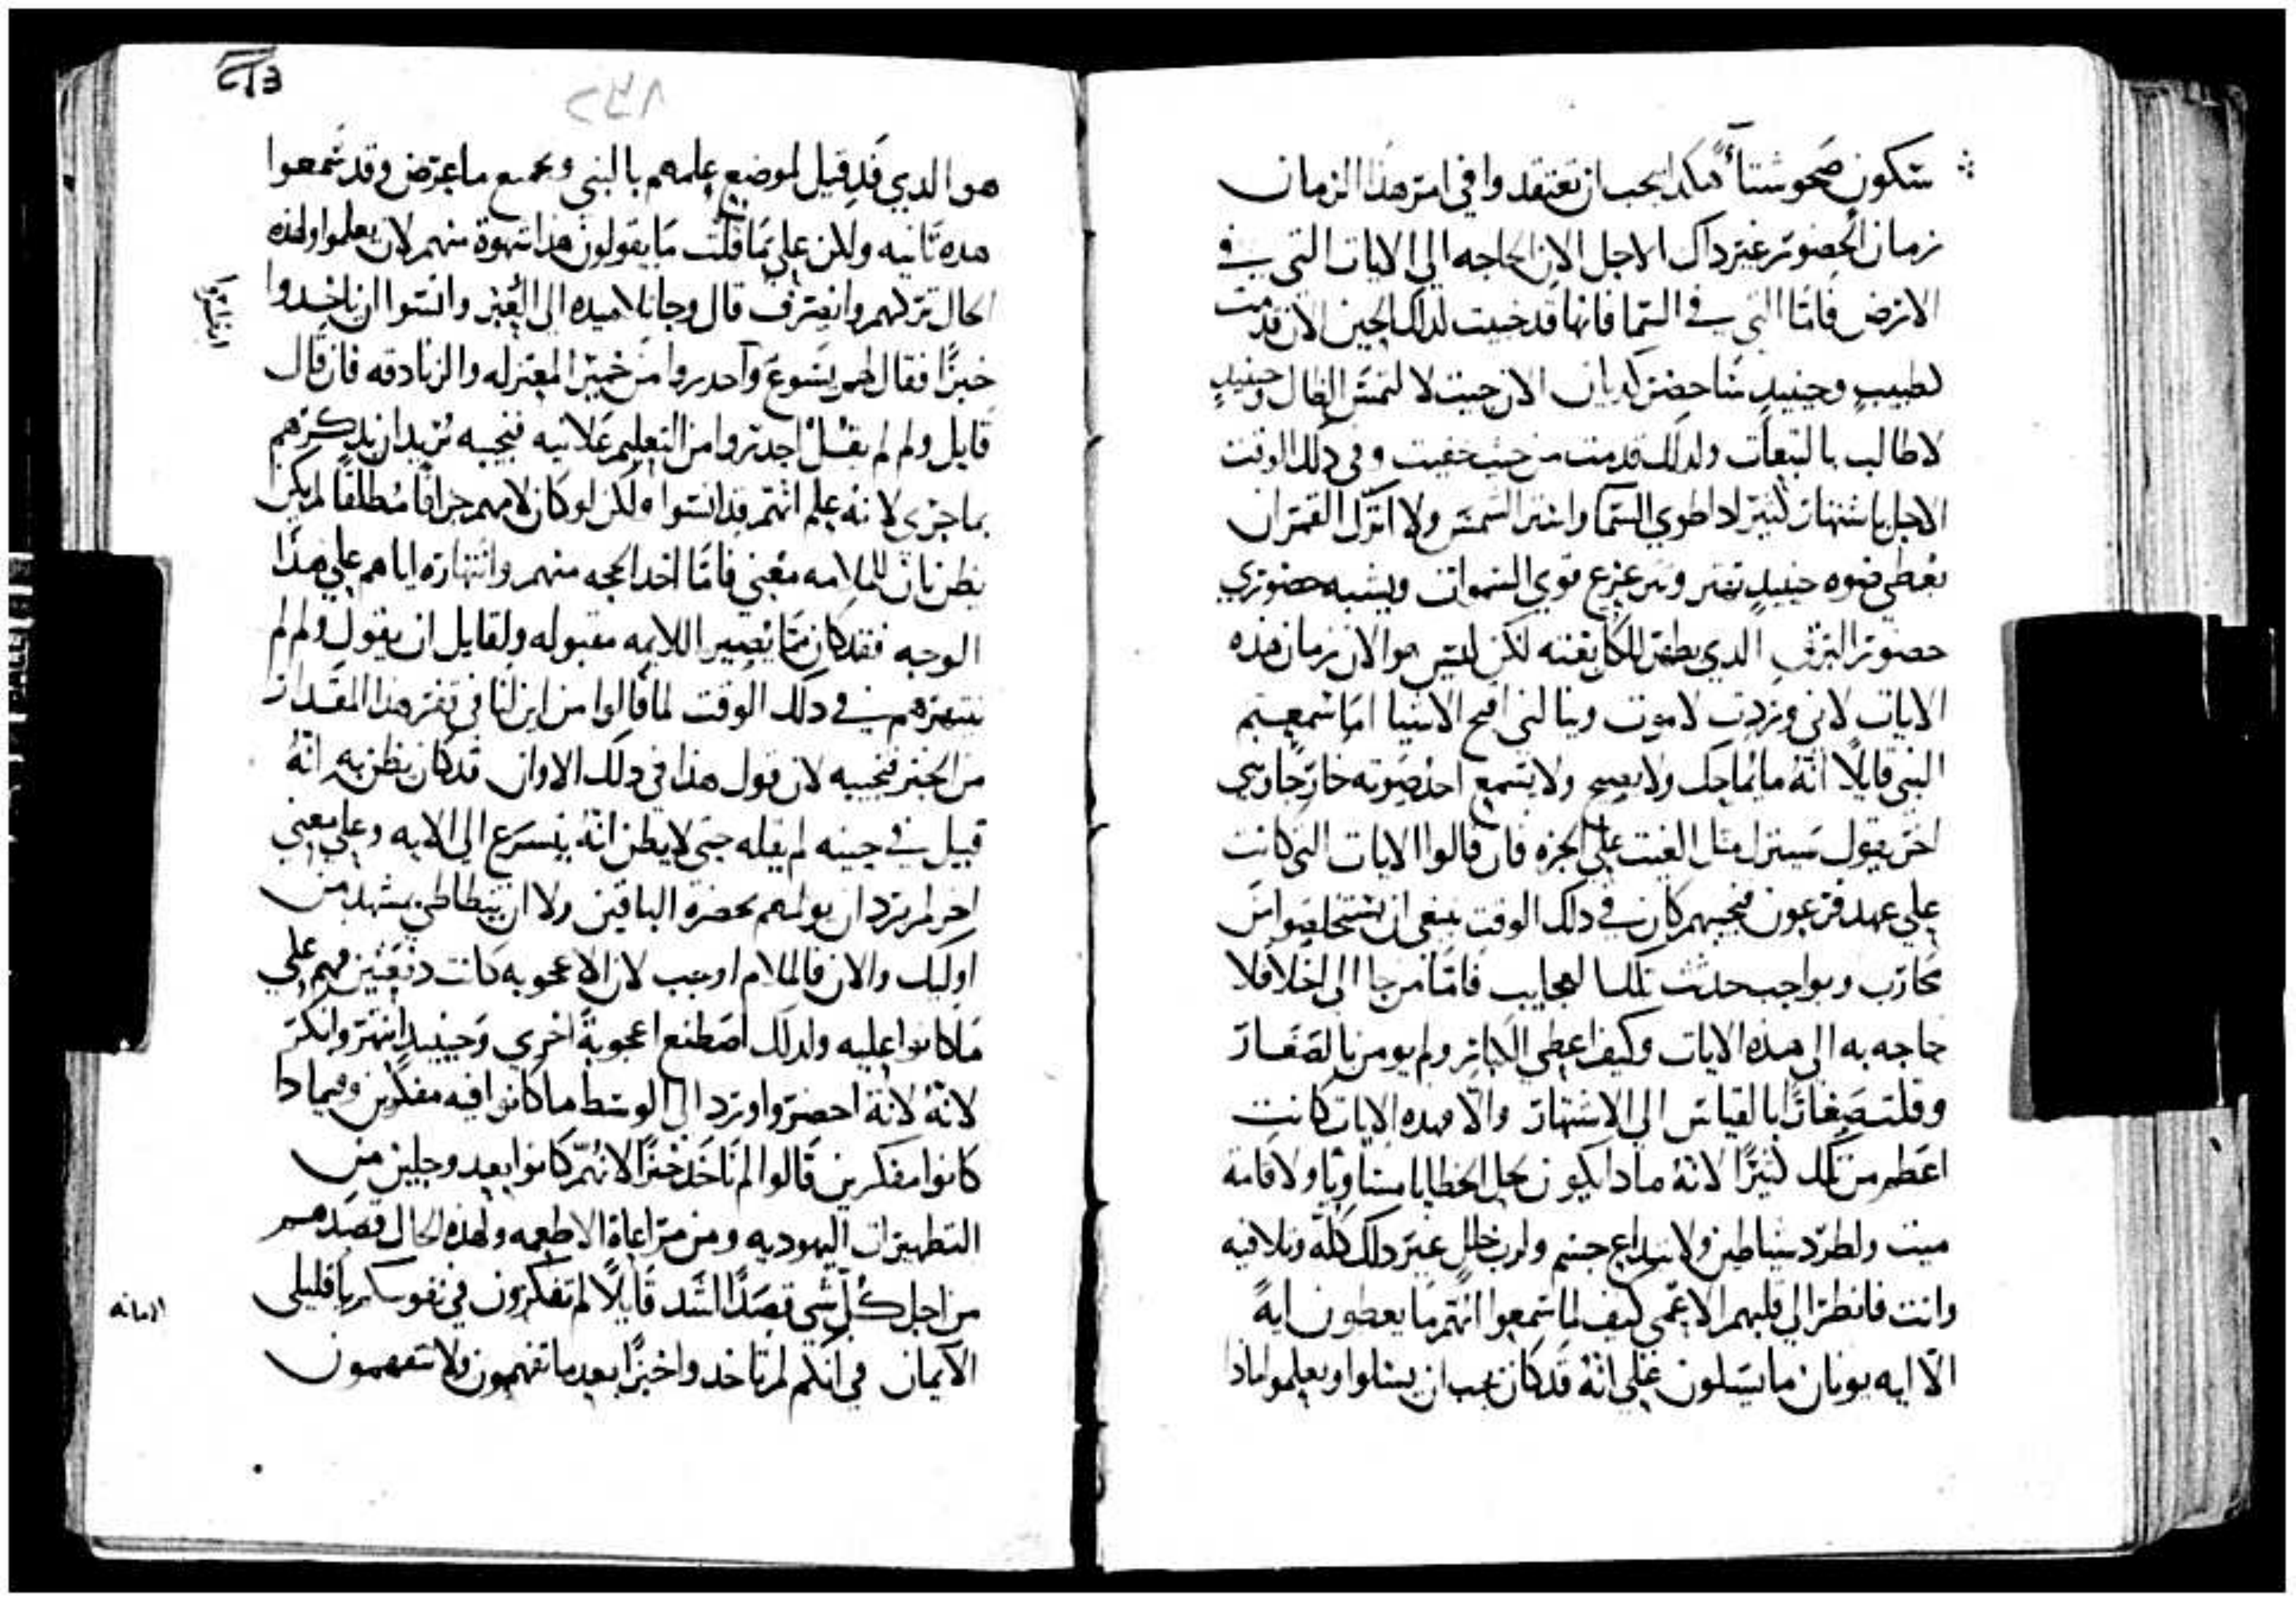 ستكون صحو شتاء هكدا يجب ان تعتقدوا في امر هذا الزمان
زمان الحضور غير داك الاجل الان الحاجه الي الايات التي في
الارض فاما التي في السما فانها قد خبيت لدلك الحين الان قدمت
كطبيب وحينيد ساحضر كديان الان جيت لالتمس الضال وحينيد
لاطالب بالتبعات ولدلك قدمت من حيث خفيت وفي دلك الوقت
الاجل باشتهار كثير اطوي السما واستر الشمس ولا اترك القمر ان
يعطي ضوه حينيد تتزعزع قوي السموات ويشبه حضوري
حضور البرق الدي يظهر للكل بغته لكن ليس هو الان زمان هذه
الايات لاني وردت لاموت وينالني اقبح الاشيا اما سمعتم
النبي قايلا انه ما يماحك ولا يصيح ولا يسمع احد صوته خارجا وبي
اخر يقول سينزل مثل الغيث علي الجزه فان قالوا الايات التي كانت
علي عهد فرعون فنجيبهم كان في دلك الوقت ينبغي ان يستخلصوا من
محارب وبواجب حدثت تلك العجايب فاما من جا الي اخلا فلا
حاجه به الي هده الايات وكيف اعطي الكبار ولم يومن بالصغار
وقلت صغارا بالقياس الي الاشتهار والا فهده الايات كانت
اعظم من تلك كثيرا لانه مادا يكون لحل الخطايا مساويا ولاقامة
ميت ولطرد شياطين ولابداع جسم ولاي خلل غير دلك كله وتلافيه
وانت فانظر الي قلبهم الاعمي كيف لما سمعوا انهم ما يعطون ايه
الا ايه يونان ما يسلون علي انه قد كان يجب ان يسلوا ويعلموا مادا
هو الدي قد قيل لموضع علمهم بالنبي وبجميع ما عرض وقد سمعوا
هده ثانيه ولكن علي ما قلت ما يقولون هدا شهوة منهم لان يعلموا ولهذه
الحال تركهم وانصرف قال وجا تلاميده الي العبر وانسوا ان ياخدوا
خبزا فقال لهم يسوع واحدروا من خمير المعتزله والزنادقه فان قال
قايل ولم لم يقل احدروا من التعليم علانيه فنجيبه يريد ان يدكرهم
بما جري لانه علم انهم قد انسوا ولكن لو كان لامهم جزافا مطلقا لم يكن
يظن بان للملامه معني فاما اخد الحجه منهم وانتهاره اياهم علي هدا
الوجه فقد كان مما يصير اللايمه مقبوله ولقايل ان يقول ولم لم
ينتهرهم في دلك الوقت لما قالوا من اين لنا في قفر هدا المقدار
من الخبز فنجيبه لان قول هذا في دلك الاوان قد كان يظن به انه
قيل في حينه لم يقله حتي لا يظن انه يتسرع الي الايه وعلي معني
اخر لم يرد ان يولمهم بحضرة الباقين ولا ان بمشهد من
اوليك والان فالملام اوجب لان الاعجوبه كانت دفعتين وهم علي
ما كانوا عليه ولدلك اصطنع اعجوبة اخري وحينيد انتهر وانكر
لانه لانه احضر واورد الي الوسط ما كانوا فيه مفكرين وفيمادا
كانوا مفكرين قالوا لم ناخد خبزا لانهم كانوا بعد وجلين من
التطهيرات اليهوديه ومن مراعاة الاطعمه ولهذه الحال قصدهم
من اجل كل شي قصدا اشد قايلا لم تفكرون في نفوسكم يا قليلي
الايمان في انكم لم تاخدوا خبزا بعد ما تفهمون ولا تتفهمون
الامانه